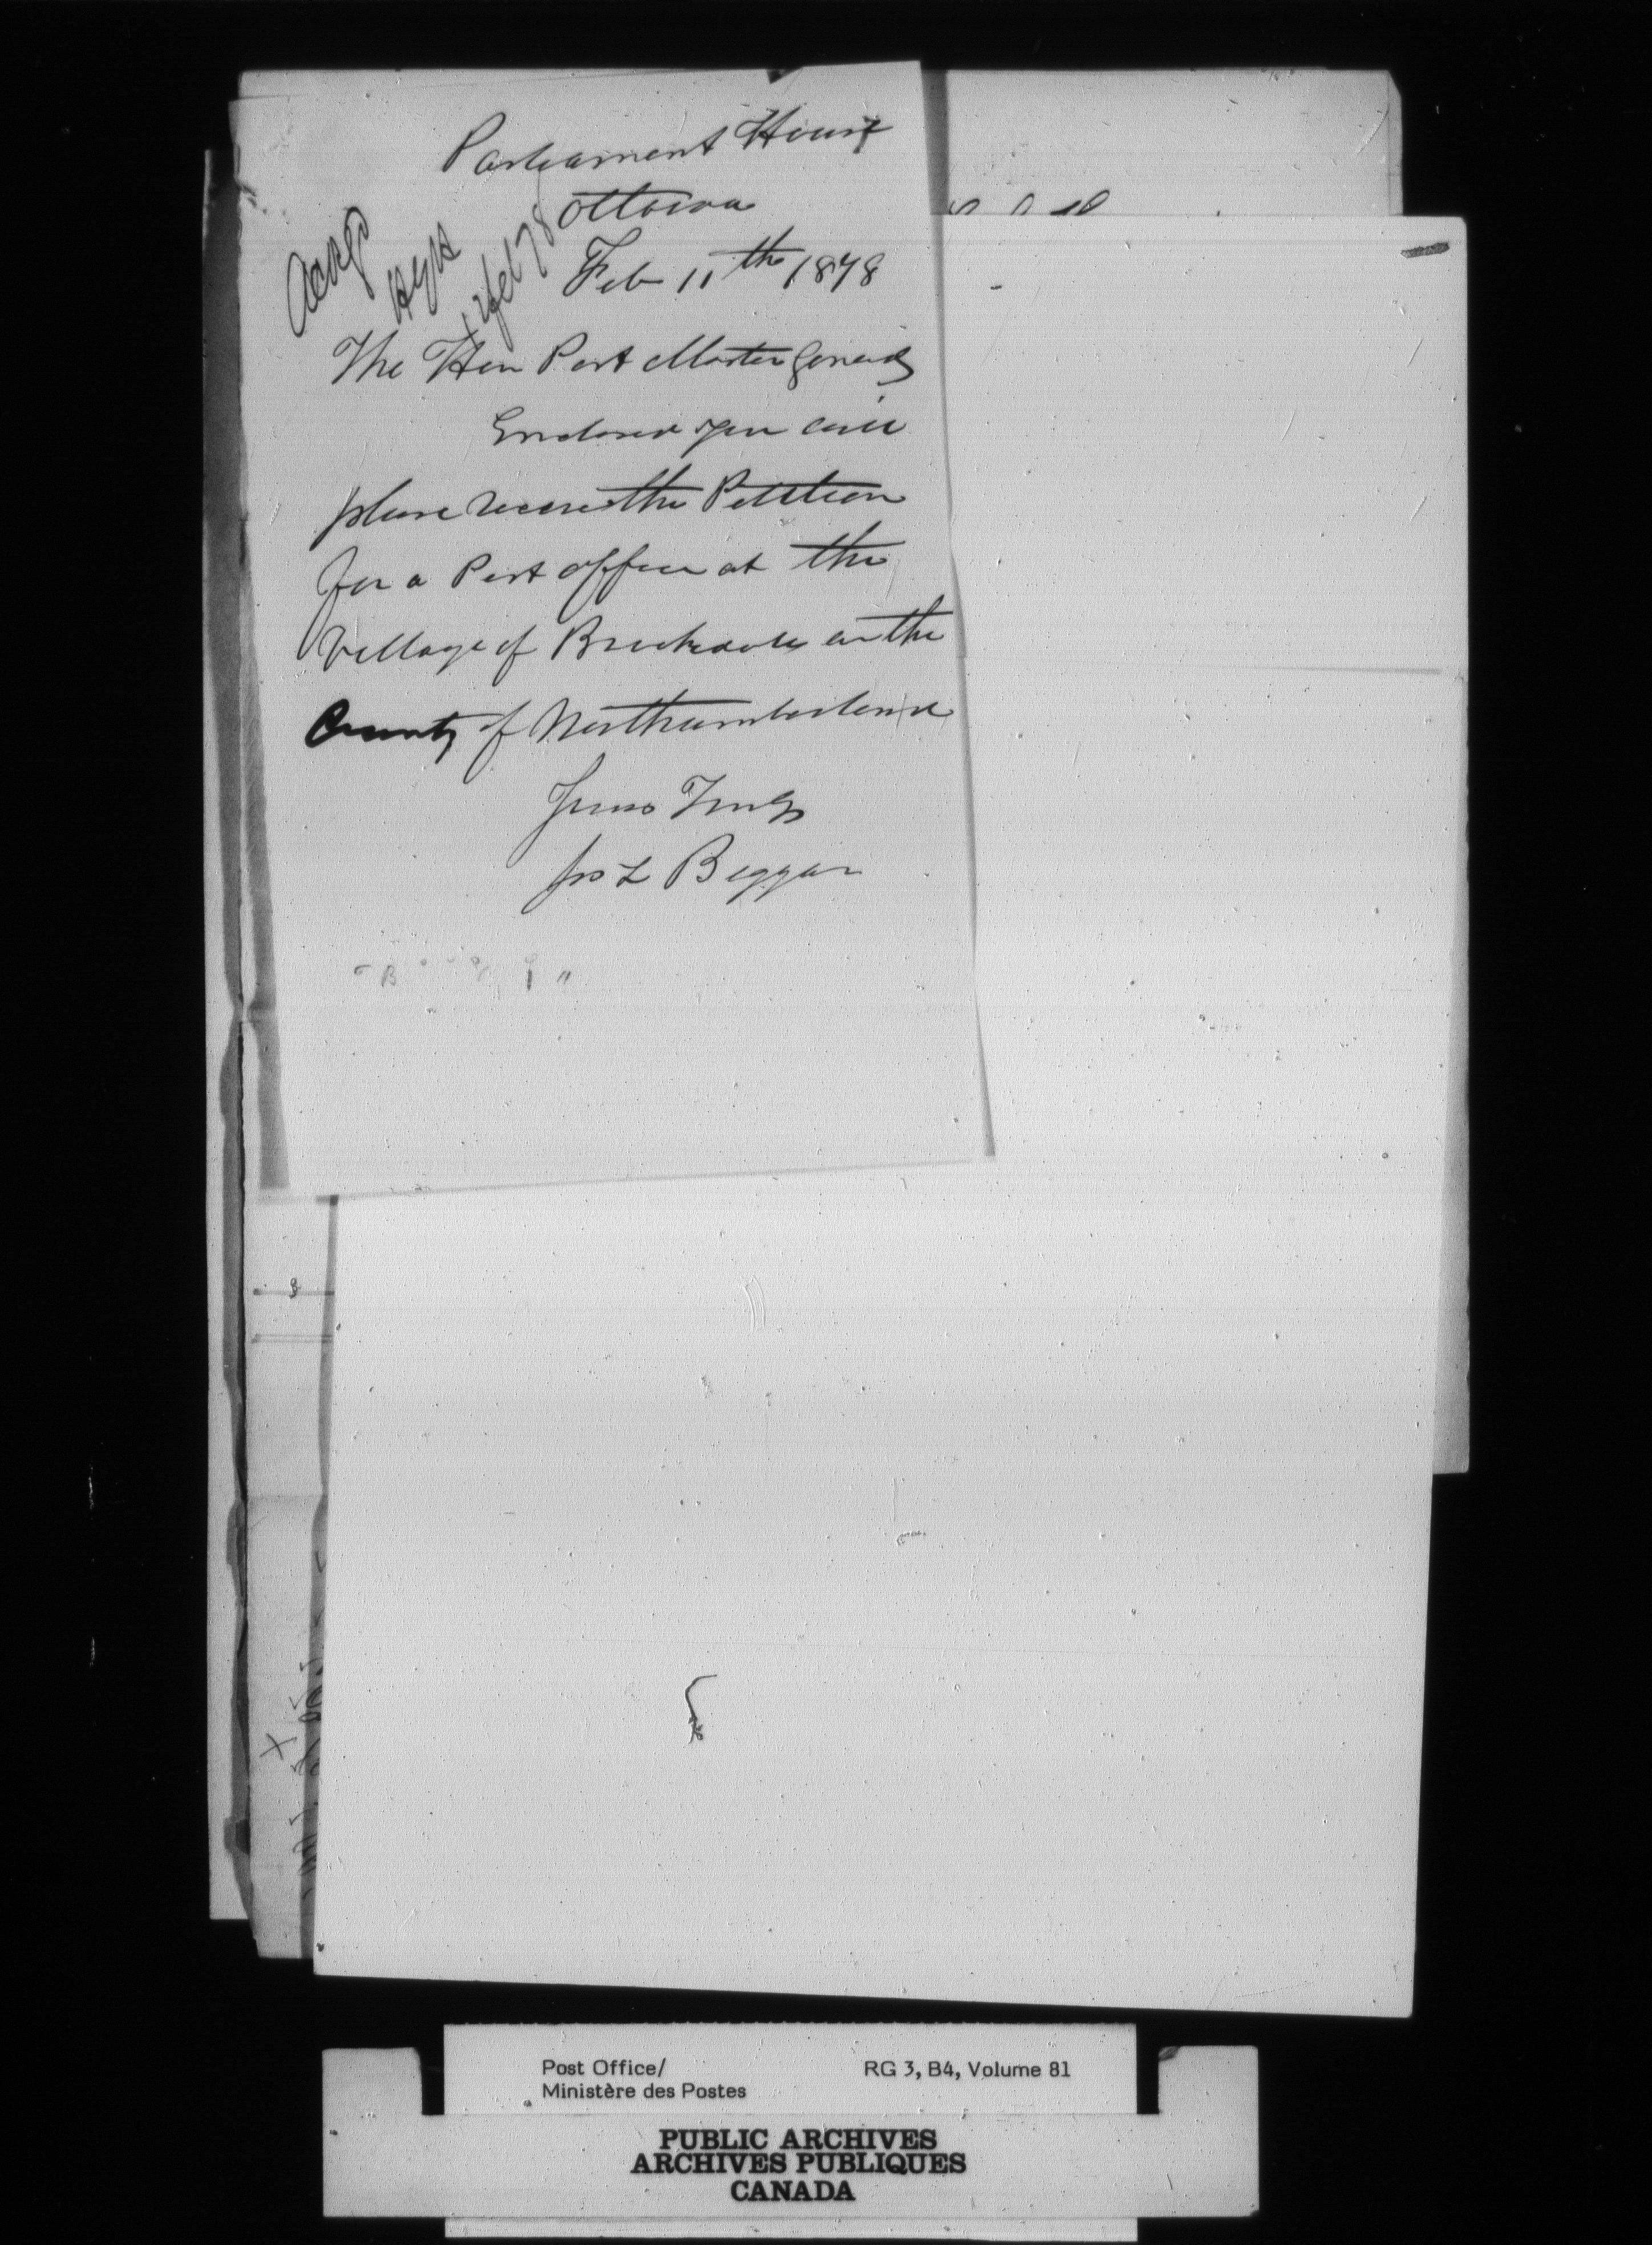 Parliament House
Ottawa
Feb 11th 1878
Ackgd
Feb 78
The Hon Post Master General
Enclosed you will
please receive the Petition
for a Post office at the
Village of Brookdale in the
County of Northumberland
Yours Truly
Jas L Biggar
Post Office/
Ministère des Postes
RG 3, B4, Volume 81
PUBLIC ARCHIVES
ARCHIVES PUBLIQUES
CANADA